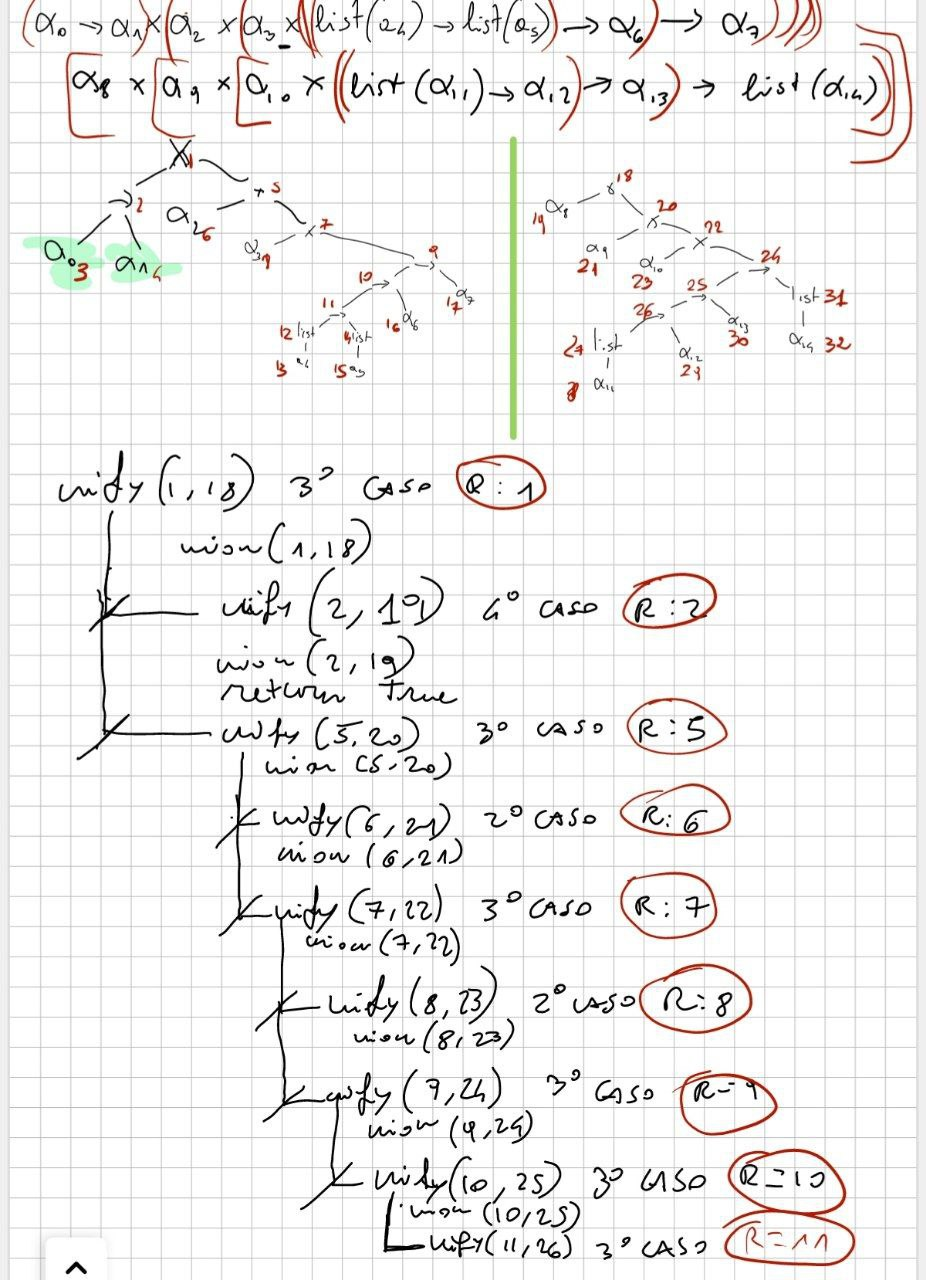 (α₀ → α₁) × (α₂ × (α₃ × ((list(α₄) → list(α₅)) → α₆) → α₇))))
[α₈ × [α₉ × [α₁₀ × ((list(α₁₁) → α₁₂) → α₁₃) → list(α₁₄)]]]
× 1
→ 2
× 5
α₀ 3
α₁ 4
α₂ 6
× 7
α₃
→ 9
10 →
α₇ 17
11 →
16 α₆
12 list
14 list
13 α₄
15 α₅
× 18
19 α₈
× 20
α₉ 21
× 22
α₁₀ 23
→ 24
25 →
list 31
α₁₄ 32
26 →
α₁₃ 30
27 list
α₁₂ 29
α₁₁
unify (1,18) 3° CASO R:1
union (1,18)
unify (2,19) 4° CASO R:2
union (2,19)
return True
unify (5,20) 3° CASO R:5
union (5,20)
unify (6,21) 2° CASO R:6
union (6,21)
unify (7,22) 3° CASO R:7
union (7,22)
unify (8,23) 2° CASO R:8
union (8,23)
unify (9,24) 3° CASO R=9
union (9,24)
unify (10,25) 3° CASO R=10
union (10,25)
unify (11,26) 3° CASO R=11